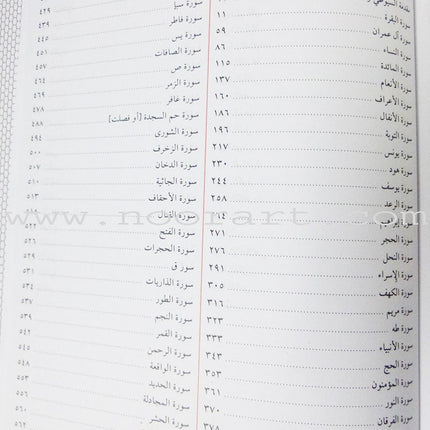 مقدمة السيوطي
سورة البقرة ١١
سورة آل عمران ٥٩
سورة النساء ٨٦
سورة المائدة ١١٥
سورة الأنعام ١٣٧
سورة الأعراف ١٦٠
سورة الأنفال ١٨٦
سورة التوبة ١٩٦
سورة يونس ٢١٧
سورة هود ٢٣٠
سورة يوسف ٢٤٤
سورة الرعد ٢٥٨
سورة إبراهيم
سورة الحجر ٢٧١
سورة النحل ٢٧٦
سورة الإسراء ٢٩١
سورة الكهف ٣٠٥
سورة مريم ٣١٦
سورة طه ٣٢٣
سورة الأنبياء ٣٣٣
سورة الحج ٣٤٣
سورة المؤمنون ٣٥٣
سورة النور ٣٦١
سورة الفرقان ٣٧٠
٣٧٨
سورة سبأ ٤٢٩
سورة فاطر ٤٣٩
سورة يس ٤٤٥
سورة الصافات ٤٥١
سورة ص ٤٥٧
سورة الزمر ٤٦٤
سورة غافر ٤٧٨
سورة حم السجدة [أو فصلت] ٤٨٨
سورة الشورى ٤٩٤
سورة الزخرف ٥٠٠
سورة الدخان ٥٠٧
سورة الجاثية ٥١٠
سورة الأحقاف ٥١٣
سورة القتال
سورة الفتح ٥٢٢
سورة الحجرات ٥٢٦
سورة ق ٥٢٩
سورة الذاريات ٥٣١
سورة الطور ٥٣٤
سورة النجم ٥٣٧
سورة القمر ٥٣٩
سورة الرحمن ٥٤٢
سورة الواقعة ٥٤٥
سورة الحديد ٥٤٨
سورة المجادلة ٥٥٣
سورة الحشر ٥٥٦
٥٦٠
٥٦٢
www.noorart.com